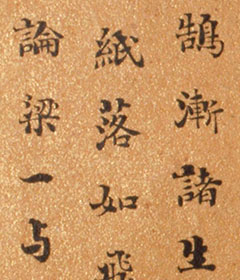 鵠漸諸生
紙落如飛
論梁一与